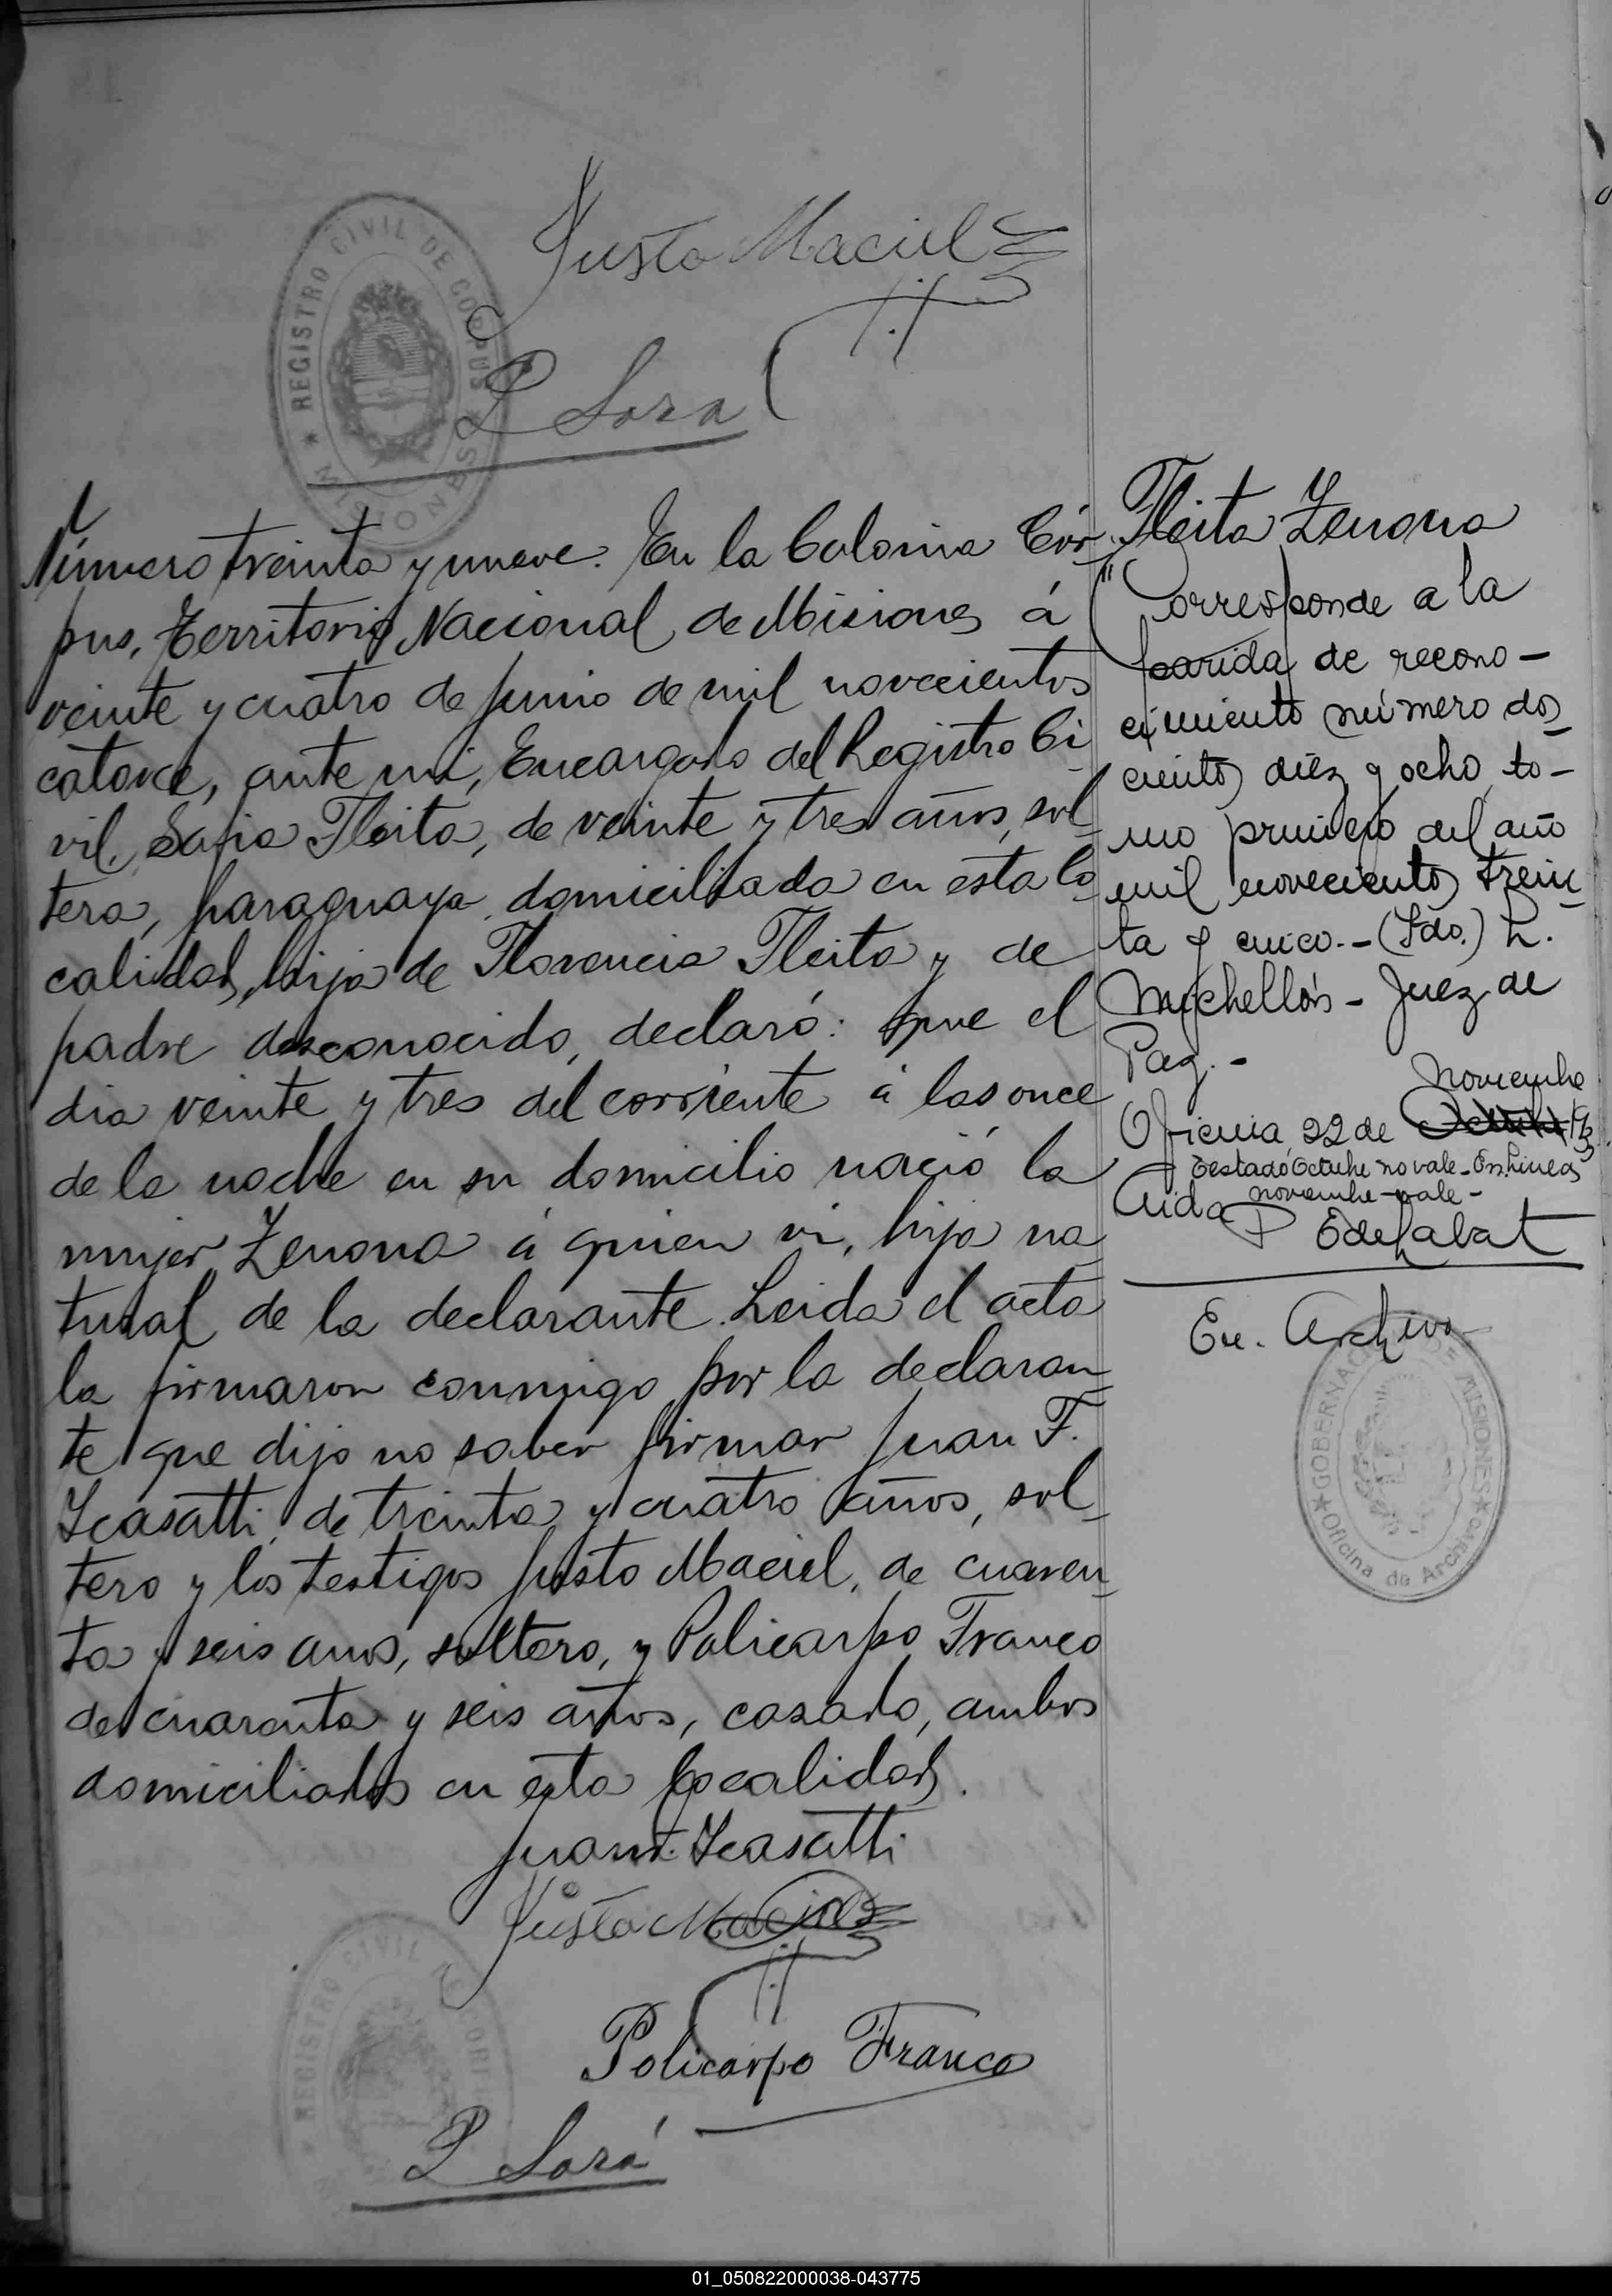 Justo Maciel
REGISTRO CIVIL DE CORPUS
MISIONES
P Sorá
Número treinta y nueve. En la Colonia Cór-
pus, Territorio Nacional de Misiones á
veinte y cuatro de Junio de mil novecientos
catorce, ante mi, Encargado del Registro Ci
vil, Fleita, de veinte y tres años, sol
tera, paraguaya domiciliada en esta lo
calidad, hija de Florencia Fleita y de
padre desconocido, declaró: que el
dia veinte y tres del corriente á las once
de la noche en su domicilio nació la
mujer Zenona á quien vi, hija na
tural de la declarante. Leida el acta
la firmaron conmigo por la declaran
te que dijo no saber firmar Juan F.
Icasatti, de treinta y cuatro años, sol
tero y los testigos Justo Maciel, de cuaren
ta y seis anos, soltero, y Policarpo Franco
de cuarenta y seis años, casado, ambos
domiciliados en esta localidad.
Juan F. Icasatti
Justo Maciel
REGISTRO CIVIL DE CORPUS
Policarpo Franco
P Sorá
Fleita Zenona
"Corresponde a la
parida de recono-
cimiento número dos
cientos diéz y ocho, to-
mo primero del año
mil novecientos trein
ta y cinco.- (Fdo.) L.
Michellón - Juez de
Paz.-
Noviembre
Oficina 22 de Octubre 193
Testado Octubre no vale - En. lineas
noviembre - vale -
Aida P Odefabat
En. Archivo
GOBERNACION DE MISIONES
Oficina de Archivo
01_050822000038-043775